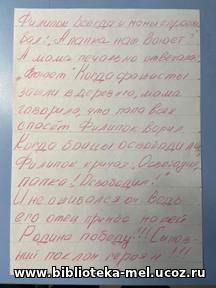 Филипок всегда у мамы спраши-
вал: „А папка наш воюет?"
А мама печально отвечала:
„Воюет" Когда фашисты
зашли в деревню, мама
говорила, что папа всех
спасёт. Филипок верил.
Когда бойцы освободили
Филипок кричал „Освободил,
папка! Освободил!"
И не ошибался он. Ведь
его отец принёс нашей
Родине победу!!! Сынов-
ний поклон героям!!!
www.biblioteka-mel.ucoz.ru